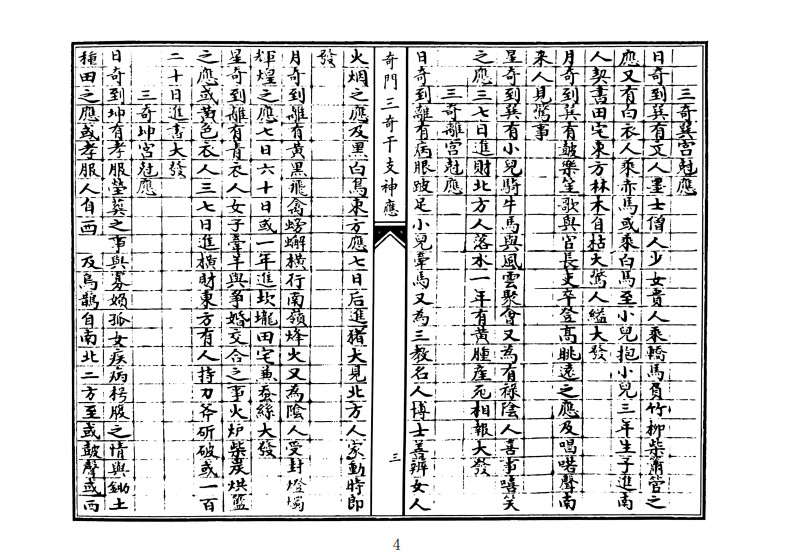 三奇巽宮尅應
日奇到巽有文人墨士僧人少女貴人乘轎馬負竹柳柴簫管之
應又有白衣人乘赤馬或乘白馬至小兒抱小兒三年生子進南
人契書田宅東方林木自枯犬驚人縊大發
月奇到巽有鼓樂笙歌與官長吏卒登高眺遠之應及唱喏聲南
來人見驚事
星奇到巽有小兒騎牛馬與風雲聚會又為有祿陰人喜事嘻笑
之應三七日進財北方人落水一年有黃腫產死相報大發
三奇離宮尅應
日奇到離有病眼跛足小兒牽馬又為三教名人博士善辨女人
奇門三奇干支神應
三
火烟之應及黑白鳥東方應七日后進猪犬見北方人家動時即
發
月奇到離有黃黑飛禽螃蠏橫行南嶺烽火又為陰人受封燈燭
輝煌之應七日六十日或一年進坎壠田宅兼蚕絲大發
星奇到離有青衣人女子牽羊與爭婚交合之事火炉柴炭烘籃
之應或黃色衣人三七日進橫財東方有人持刀斧斫破或一百
二十日進書大發
三奇坤宮尅應
日奇到坤有孝服塋葬之事與寡婦孤女疾病 服之情與鋤土
種田之應或孝服人自西 及烏鵲自南北二方至或鼓聲或西
4